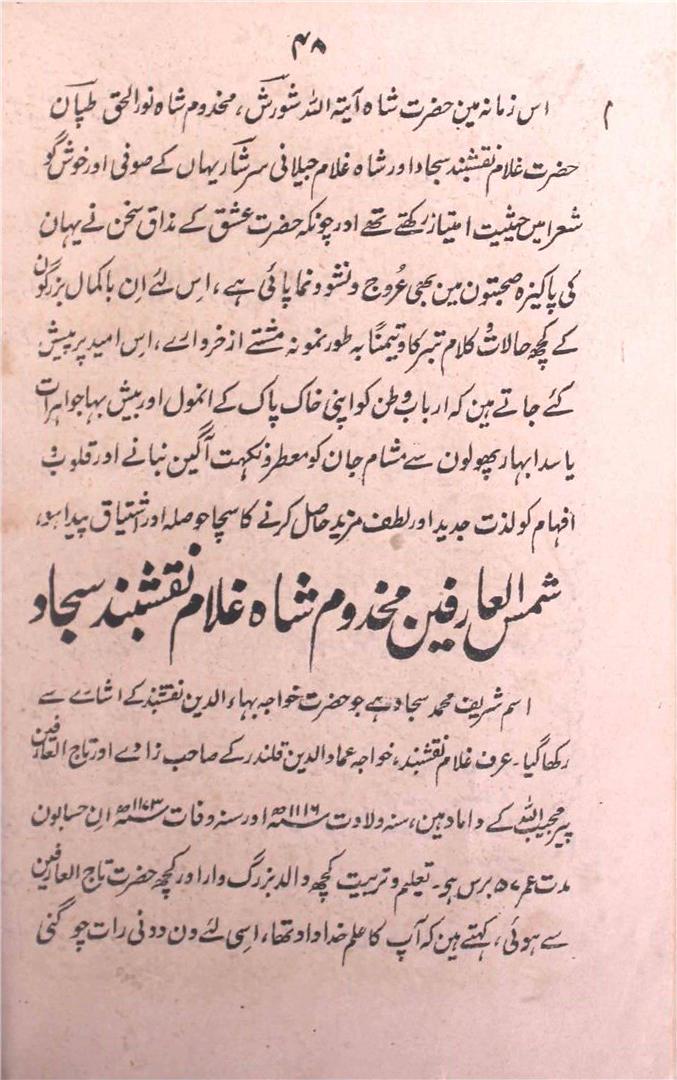 ۴۸
اس زمانہ مین حضرت شاہ آیتہ اللہ شورش، مخدوم شاہ نور الحق طپان
حضرت غلام نقشبند سجاد اور شاہ غلام جیلانی سرشار یہاں کے صوفی اور خوش گو
شعرا میں حیثیت امتیاز رکھتے تھے اور چونکہ حضرت عشق کے مذاق سخن نے یہان
کی پاکیزہ صحبتون مین بھی عُروج و نشو و نما پائی ہے، اس لئے اِن باکمال بزرگون
کے کچھ حالات و کلام تبرکا و تیمنًا بہ طور نمونہ مشتے از خروارے، اس امید پر پیش
کئے جاتے ہین کہ ارباب وطن کو اپنی خاک پاک کے انمول اور بیش بہا جواہرات
یا سدا بہار پھولون سے مشام جان کو معطر و نکہت آگین بنانے اور قلوب و
افہام کو لذت جدید اور لطف مزید حاصل کرنے کا سچا حوصلہ اور اشتیاق پیدا ہو،
شمس العارفین مخدوم شاہ غلام نقشبند سجاد
اسم شریف محمد سجاد ہے جو حضرت خواجہ بہاء الدین نقشبند کے اشارے سے
رکھا گیا۔ عرف غلام نقشبند، خواجہ عماد الدین قلندر کے صاحب زادے اور تاج العارفین
پیر مجیب اللہ کے داماد ہین، سنہ ولادت ۱۱۱۶ھ اور سنہ وفات ۱۱۷۳ھ اِن حسابون
مدت عمر ۵۷ برس ہوی۔ تعلیم و تربیت کچھ والد بزرگ وار اور کچھ حضرت تاج العارفین
سے ہوئی، کہتے ہین کہ آپ کا علم خداداد تھا، اسی لئے دن دونی رات چوگنی